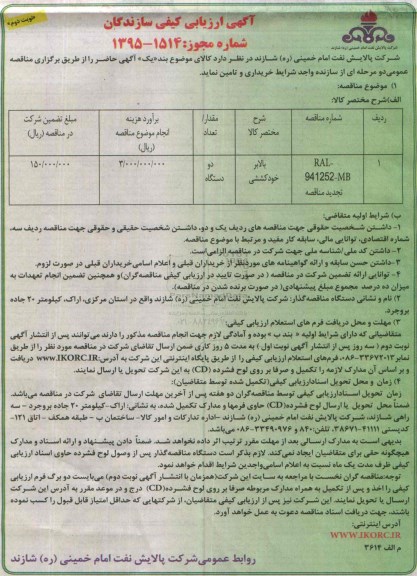 نوبت دوم
آگهی ارزیابی کیفی سازندگان
شماره مجوز: ۱۵۱۴-۱۳۹۵
شرکت پالایش نفت امام خمینی (ره) شازند در نظر دارد کالای موضوع بند«یک» آگهی حاضر را از طریق برگزاری مناقصه
عمومی دو مرحله ای از سازنده واجد شرایط خریداری و تامین نماید.
۱) موضوع مناقصه:
الف)شرح مختصر کالا:
ردیف
شماره مناقصه
شرح مختصر کالا
مقدار/ تعداد
برآورد هزینه انجام موضوع مناقصه (ریال)
مبلغ تضمین شرکت در مناقصه (ریال)
۱
RAL-941252-MB تجدید مناقصه
بالابر خودکششی
دو دستگاه
۳/۰۰۰/۰۰۰/۰۰۰
۱۵۰/۰۰۰/۰۰۰
ب) شرایط اولیه متقاضی:
۱- داشتن شخصیت حقوقی جهت مناقصه های ردیف یک و دو، داشتن شخصیت حقیقی و حقوقی جهت مناقصه ردیف سه،
شماره اقتصادی، توانایی مالی، سابقه کار مفید و مرتبط با موضوع مناقصه.
۲- داشتن کد ملی/شناسه ملی جهت شرکت در مناقصه الزامی است.
۳-داشتن حسن سابقه و ارائه گواهینامه های موردنظر از خریداران قبلی و اعلام اسامی خریداران قبلی در صورت لزوم.
۴- توانایی ارائه تضمین شرکت در مناقصه ( در صورت تایید در ارزیابی کیفی مناقصه گران) و همچنین تضمین انجام تعهدات به
میزان ده درصد مجموع مبلغ پیشنهادی( در صورت برنده شدن در مناقصه).
۲) نام و نشانی دستگاه مناقصه گذار: شرکت پالایش نفت امام خمینی (ره) شازند واقع در استان مرکزی، اراک، کیلومتر ۲۰ جاده
بروجرد.
۳) مهلت و محل دریافت فرم های استعلام ارزیابی کیفی:
متقاضیانی که دارای شرایط اولیه « بند ب » بوده و آمادگی لازم جهت انجام مناقصه مذکور را دارند می توانند پس از انتشار آگهی
نوبت دوم ( سه روز پس از انتشار آگهی نوبت اول) به مدت ۵ روز کاری ضمن ارسال تقاضای شرکت در مناقصه مورد نظر را از طریق
نمابر ۳۳۶۷۲۰۱۲-۰۸۶، فرم های استعلام ارزیابی کیفی را از طریق پایگاه اینترنتی این شرکت به آدرس: WWW.IKORC.IR دریافت
و بر اساس آن مدارک لازمه را تکمیل و صرفا بر روی لوح فشرده (CD) به این شرکت تحویل یا ارسال نمایند.
۴) زمان و محل تحویل اسناد ارزیابی کیفی(تکمیل شده توسط متقاضیان):
زمان تحویل اسناد ارزیابی کیفی توسط مناقصه گران دو هفته پس از آخرین مهلت ارسال تقاضای شرکت در مناقصه می باشد.
ضمناً محل تحویل یا ارسال لوح فشرده(CD) حاوی فرمها و مدارک تکمیل شده، به نشانی: اراک-کیلومتر ۲۰ جاده بروجرد - سه
راهی شازند، شرکت پالایش نفت امام خمینی (ره) شازند -اداره تدارکات و امور کالا- ساختمان ب - طبقه همکف - اتاق ۱۲۱-
کدپستی ۳۸۶۷۱۴۱۱۱۱، تلفن: ۸۴۰ و ۳۳۴۹۰۹۷۶-۰۸۶ می باشد.
بدیهی است به مدارک ارسالی بعد از مهلت مقرر ترتیب اثر داده نخواهد شد. ضمناً دادن پیشنهاد و ارائه اسناد و مدارک
هیچگونه حقی برای متقاضیان ایجاد نمی کند. لازم بذکر است دستگاه مناقصه گذار پس از وصول لوح فشرده حاوی اسناد ارزیابی
کیفی ظرف مدت یک ماه نسبت به اعلام اسامی واجدین شرایط اقدام خواهد نمود.
توجه:مناقصه گران نخست با مراجعه به سایت این شرکت(همزمان با انتشار آگهی نوبت دوم) می بایست دو برگ فرم ارزیابی
کیفی را اخذ و پس از تکمیل به همراه مدارک مربوطه صرفا بر روی لوح فشرده(CD) درج و در موعد مقرر به آدرس این شرکت
ارسال یا تحویل نمایند. این شرکت نیز پس از ارزیابی کیفی متقاضیان، از شرکتهایی که حداقل امتیاز قابل قبول را کسب نموده
باشند، جهت دریافت اسناد مناقصه دعوت به عمل خواهد آورد.
آدرس اینترنتی:
WWW.IKORC.IR
م الف ۳۶۱۴
روابط عمومی شرکت پالایش نفت امام خمینی (ره) شازند